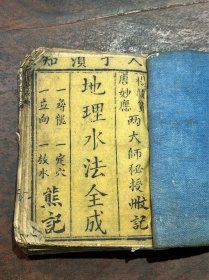 人丁須知
唐妙應
兩大師秘授
地理水法全成
一尋龍 一定穴
一立向 一放水
熊記